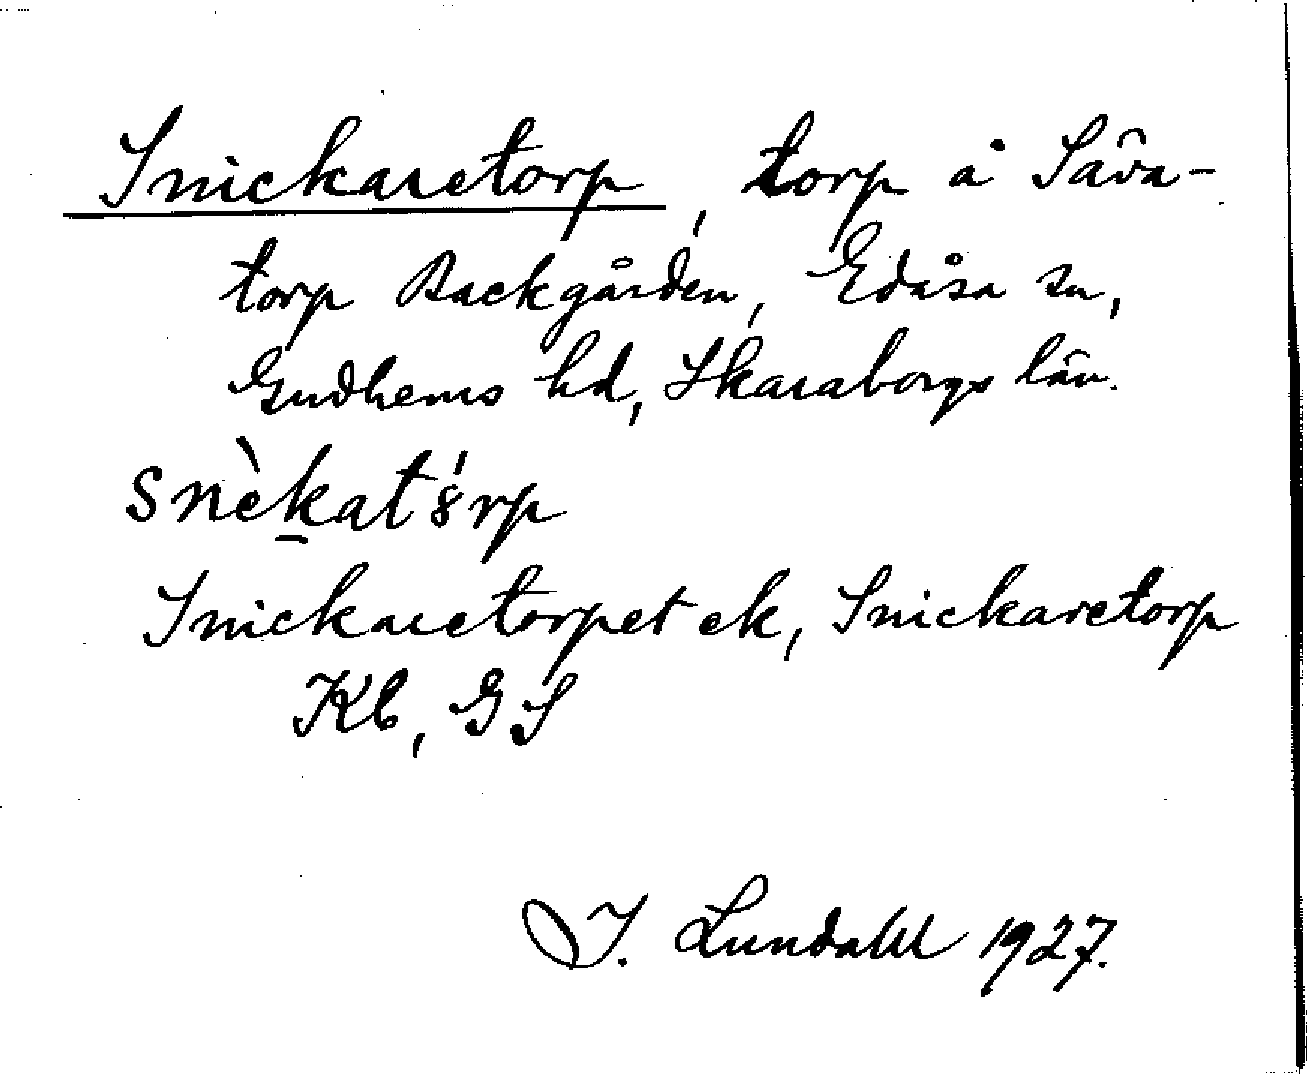 Snickaretorp, torp å Säva-
torp Backgården, Edåsa sn,
Gudhems hd, Skaraborgs län.
snèkat8́rp
Snickaretorpet ek, Snickaretorp
Kb, GS
I. Lundahl 1927.